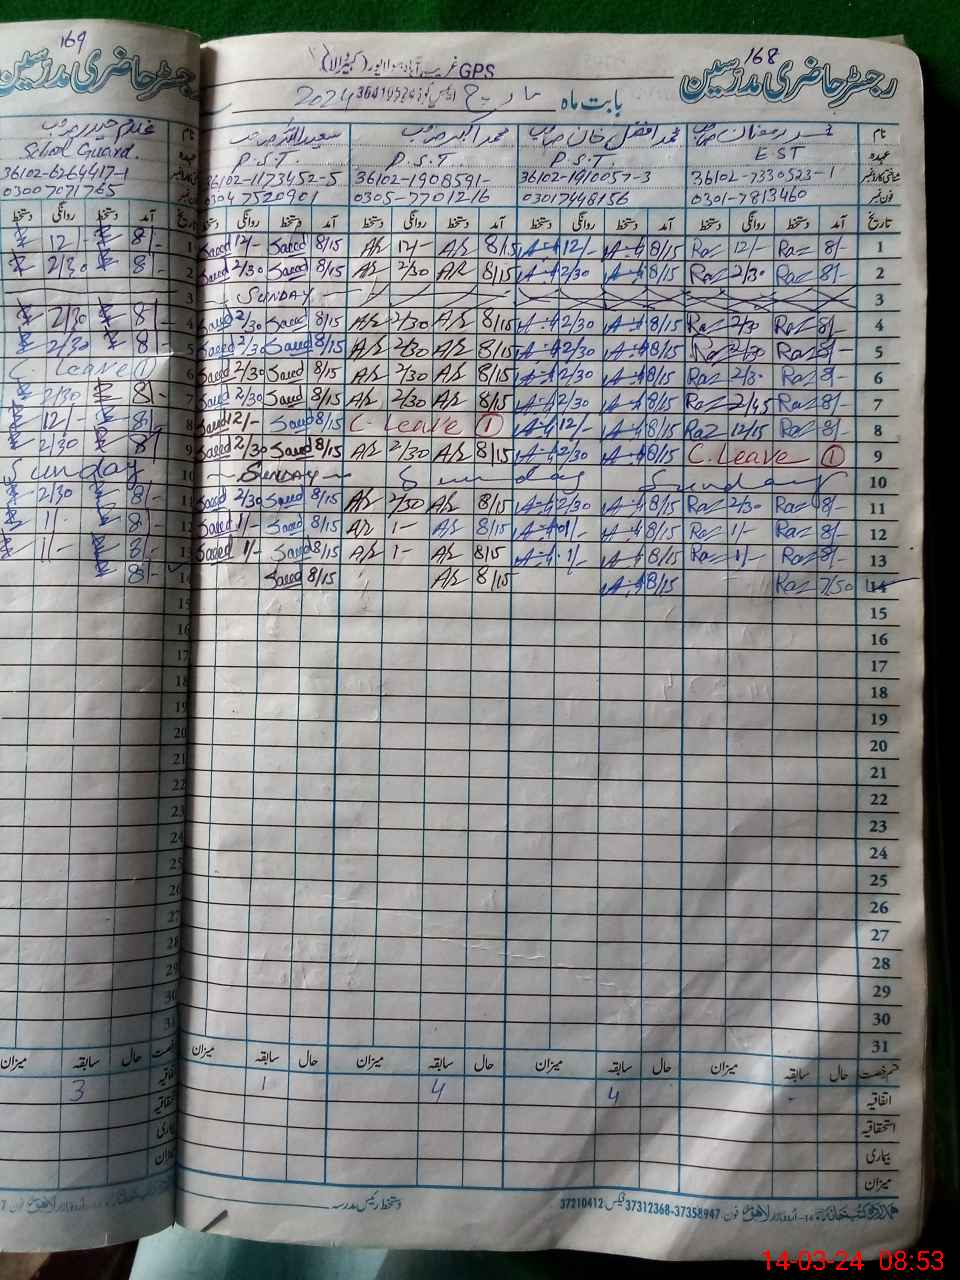 168
رجسٹر حاضری مدرسین
GPS غریب آباد
بابت ماہ مارچ 2024
نام محمد رمضان صاحب محمد افضل خان صاحب محمد اکبر صاحب
عہدہ EST P.S.T. P.S.T. P.S.T.
شناختی کارڈ نمبر 36102-7330523-1 36102-1910057-3 36102-1908591- 36102-1173452-5
فون نمبر 0301-7813460 03017448156 0305-7701216 0304 7520901
تاریخ آمد دستخط روانگی دستخط آمد دستخط روانگی دستخط آمد دستخط روانگی دستخط آمد دستخط روانگی دستخط
1 8/- Raz 12/- Raz 8/15 12/- 8/15 AR 12/- AR 8/15 Saeed 12/- Saeed
2 8/- Raz 2/30 Raz 8/15 2/30 8/15 AR 2/30 AR 8/15 Saeed 2/30 Saeed
3 SUNDAY
4 8/- Raz 2/30 Raz 8/15 2/30 8/15 AR 2/30 AR 8/15 Saeed 2/30 Saeed
5 8/- Raz 2/30 Raz 8/15 2/30 8/15 AR 2/30 AR 8/15 Saeed 2/30 Saeed
6 8/- Raz 2/30 Raz 8/15 2/30 8/15 AR 2/30 AR 8/15 Saeed 2/30 Saeed
7 8/- Raz 2/45 Raz 8/15 2/30 8/15 AR 2/30 AR 8/15 Saeed 2/30 Saeed
8 8/- Raz 12/15 Raz 8/15 12/- C. Leave 1 8/15 Saeed 12/- Saeed
9 C. Leave 1 8/15 2/30 8/15 AR 2/30 AR 8/15 Saeed 2/30 Saeed
10 Sunday Sunday SUNDAY
11 8/- Raz 2/30 Raz 8/15 2/30 8/15 AR 2/30 AR 8/15 Saeed 2/30 Saeed
12 8/- Raz 1/- Raz 8/15 1/- 8/15 AR 1- AR 8/15 Saeed 1/- Saeed
13 8/- Raz 1/- Raz 8/15 1/- 8/15 AR 1- AR 8/15 Saeed 1/- Saeed
14 7/50 Raz 8/15 8/15 AR 8/15 Saeed
15
16
17
18
19
20
21
22
23
24
25
26
27
28
29
30
31
قسم رخصت حال سابقہ میزان حال سابقہ میزان حال سابقہ میزان حال سابقہ میزان
اتفاقیہ - 4 4 1
استحقاقیہ
بیماری
میزان
دستخط رئیس مدرسہ
فون 37358947-37312368 فیکس 37210412
169
رجسٹر حاضری مدرسین
غلام حیدر صاحب
School Guard.
36102-6264417-1
03007071765
تاریخ آمد دستخط روانگی دستخط
1 8/- 12/-
2 8/- 2/30
3
4 8/- 2/30
5 8/- 2/30
6 C. Leave 1
7 8/- 2/30
8 8/- 12/-
9 8/- 2/30
10 Sunday
11 8/- 2/30
12 8/- 1/-
13 8/- 1/-
14 8/-
15
16
17
18
19
20
21
22
23
24
25
26
27
28
29
30
31
حال سابقہ میزان
3
14-03-24 08:53